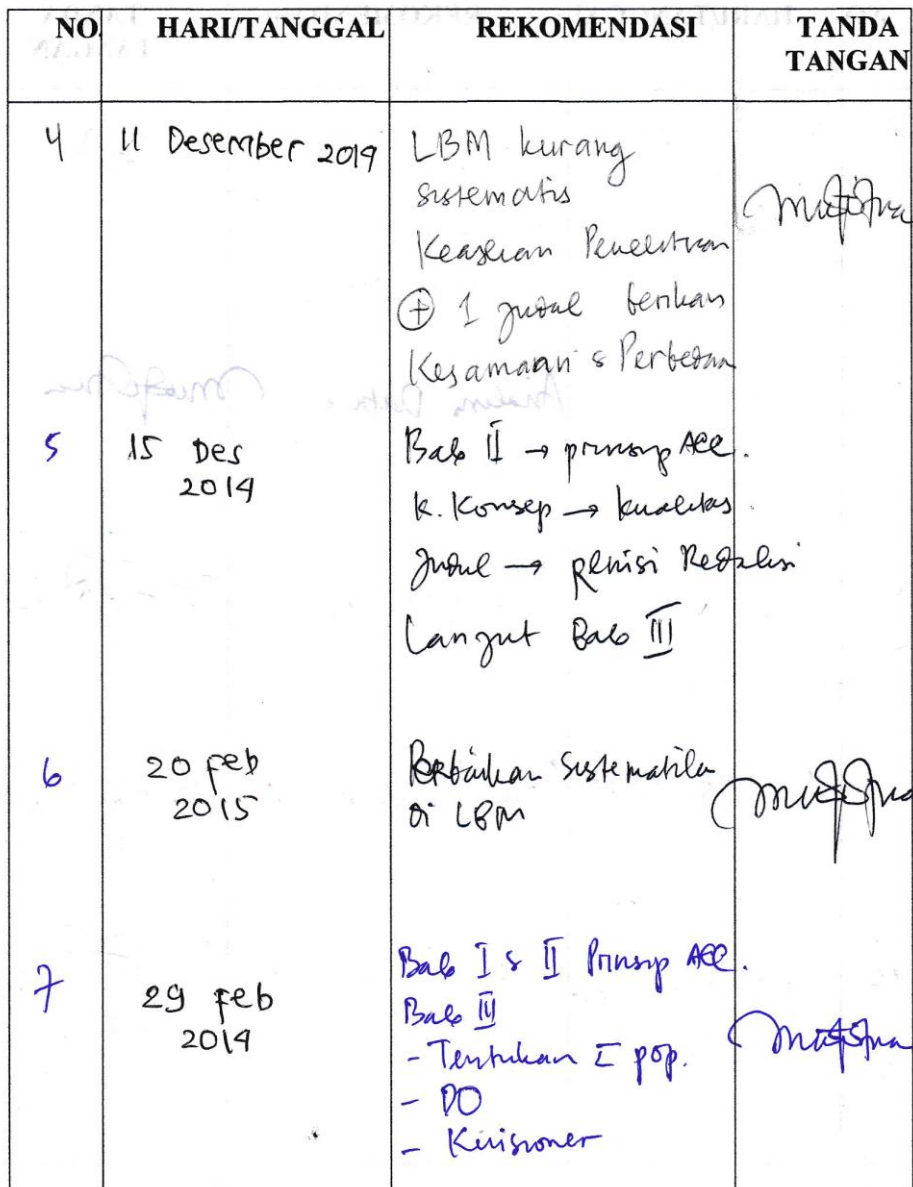 NO. HARI/TANGGAL REKOMENDASI TANDA TANGAN
4 11 Desember 2014 LBM kurang
sistematis
Keaslian Penelitian
⊕ 1 judul berikan
Kesamaan & Perbedaan
5 15 Des 2014 Bab II → prinsip ACC.
K. Konsep → kualitas
Judul → revisi Redaksi
Lanjut Bab III
6 20 Feb 2015 Perbaikan Sistematika
di LBM
7 29 Feb 2014 Bab I & II Prinsip ACC.
Bab III
- Tentukan Σ pop.
- DO
- Kuisioner